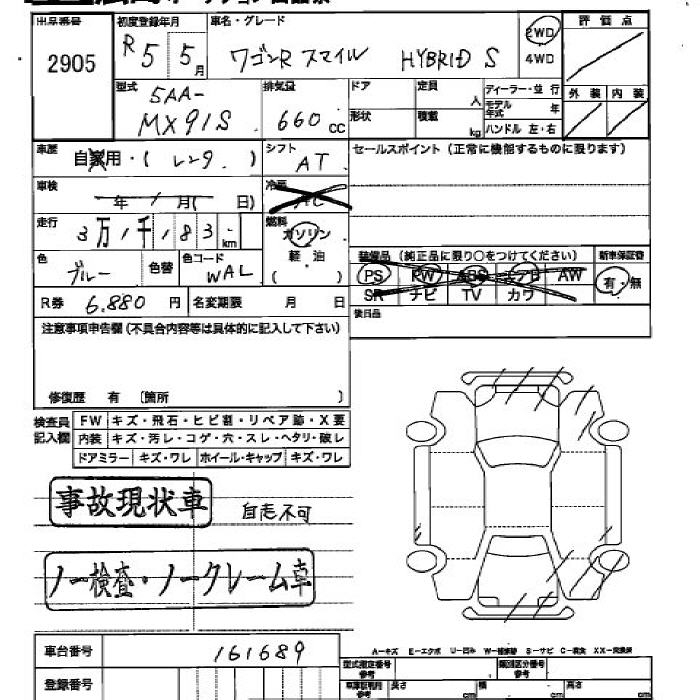 出品番号 初度登録年月 車名・グレード 評価点
2905 R5 5月 ワゴンR スマイル HYBRID S 2WD 4WD
型式 5AA- MX91S 排気量 660 cc ドア 定員 人 ディーラー・並行 外装 内装
形状 積載 kg モデル年式 年
ハンドル 左・右
車歴 自家用・( レンタ. ) シフト AT セールスポイント(正常に機能するものに限ります)
車検 年 月( 日) 冷房 AC
走行 3万1千183 km 燃料 ガソリン
軽・油
( )
色 ブルー 色替 色コード WAL 装備品(純正品に限り○をつけてください) 新車保証書
PS PW ABS エアB AW 有・無
SR ナビ TV カワ
R券 6.880円 名変期限 月 日
後日品
注意事項申告欄(不具合内容等は具体的に記入して下さい)
修復歴 有 〔箇所 〕
検査員記入欄 FW キズ・飛石・ヒビ割・リペア跡・X要
内装 キズ・汚レ・コゲ・穴・スレ・ヘタリ・破レ
ドアミラー キズ・ワレ ホイール・キャップ キズ・ワレ
事故現状車 自走不可
ノー検査・ノークレーム車
A−キズ E−エクボ U−凹み S−サビ
車台番号 161689 型式指定番号 類別区分番号
登録番号 長さ cm 幅 cm 高さ cm